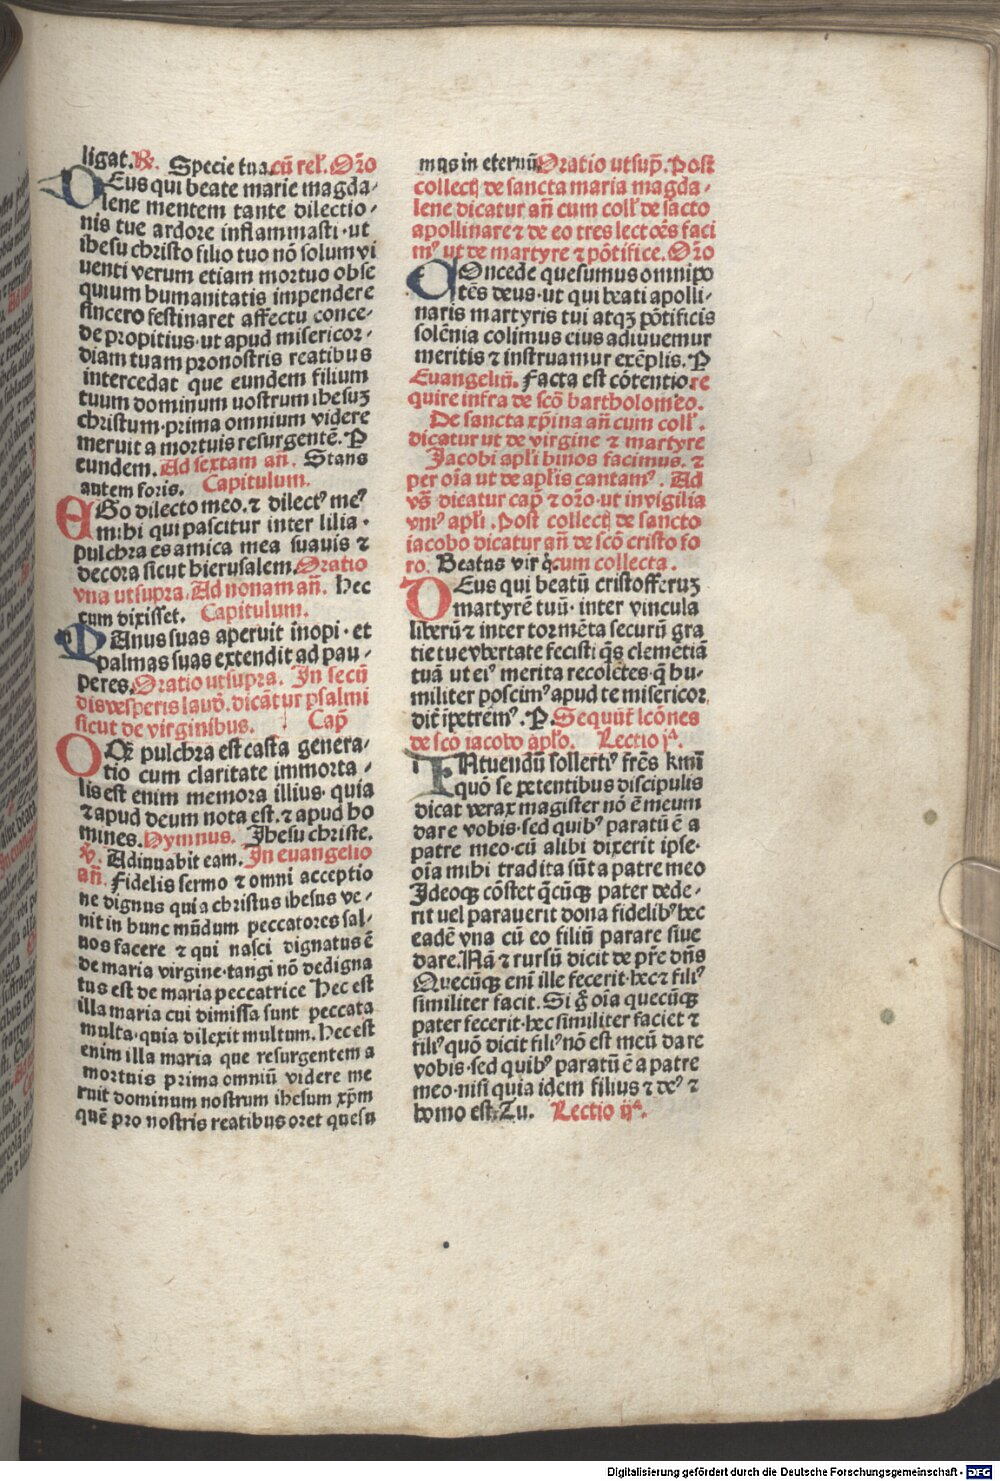 ligat. R̃. Specie tua. cũ rel̃. Or̃o
DEus qui beate marie magda⸗
lene mentem tante dilectio⸗
nis tue ardore inflammasti · ut
ihesu christo filio tuo nõ solum vi
uenti verum etiam mortuo obse
quium humanitatis impendere
sincero festinaret affectu conce⸗
de propitius · ut apud misericor⸗
diam tuam pro nostris reatibus
intercedat que eundem filium
tuum dominum nostrum ihesuʒ
christum · prima omnium videre
meruit a mortuis resurgentẽ. P
eundem. Ad sextam añ. Stans
autem foris. Capitulum.
EGo dilecto meo. ⁊ dilectꝰ meꝰ
mihi qui pascitur inter lilia ·
pulchra es amica mea suauis ⁊
decora sicut hierusalem. Oratio
vna utsupra. Ad nonam añ. Hec
cum dixisset. Capitulum.
MAnus suas aperuit inopi · et
palmas suas extendit ad pau⸗
peres. Oratio utsupra. In secũ
dis vesperis laud̃. dicãtur psalmi
sicut de virginibus. Cap̃
OQ̃ pulchra est casta genera⸗
tio cum claritate immorta⸗
lis est enim memoria illius · quia
⁊ apud deum nota est. ⁊ apud ho
mines. Hymnus. Ihesu christe.
v̄. Adiuuabit eam. In euangelio
añ. Fidelis sermo ⁊ omni acceptio
ne dignus quia christus ihesus ve⸗
nit in hunc mũdum peccatores sal⸗
uos facere ⁊ qui nasci dignatus ẽ
de maria virgine · tangi nõ dedigna
tus est de maria peccatrice Hec est
illa maria cui dimissa sunt peccata
multa · quia dilexit multum. Hec est
enim illa maria que resurgentem a
mortuis prima omniũ videre me
ruit dominum nostrum ihesum xp̃m
quẽ pro nostris reatibus oret quesu
mus in eternũ. Oratio utsup̃. Post
collectã de sancta maria magda⸗
lene dicatur añ cum coll̃ de sãcto
apollinare ⁊ de eo tres lectões faci
mꝰ ut de martyre ⁊ põtifice. Or̃o
COncede quesumus omnipo
tẽs deus · ut qui beati apolli⸗
naris martyris tui atqʒ põtificis
solẽnia colimus eius adiuuemur
meritis ⁊ instruamur exẽplis. P
Euangeliũ. Facta est cõtentio. re
quire infra de scõ bartholomeo.
De sancta xp̃ina añ cum coll̃.
dicatur ut de virgine ⁊ martyre
Jacobi apl̃i binos facimus. ⁊
per oĩa ut de apl̃is cantamꝰ. Ad
vs̃ dicatur cap̃ ⁊ or̃o · ut in vigilia
vniꝰ apl̃i. Post collectã de sancto
iacobo dicatur añ de scõ cristofo
ro. Beatus vir q̃ cum collecta.
DEus qui beatũ cristofferuʒ
martyrẽ tuũ · inter vincula
liberũ ⁊ inter tormẽta securũ gra
tie tue vbertate fecisti q̃s clemẽtiã
tuã ut eiꝰ merita recolẽtes · q̃ hu⸗
militer poscimꝰ apud te misericor
dit̃ ĩpetremꝰ. P. Sequũt̃ lcões
de scõ iacobo apl̃o. Lectio jᵃ.
INtuendũ sollertiꝰ fr̃es kmĩ
quõ se petentibus discipulis
dicat verax magister nõ ẽ meum
dare vobis · sed quibꝰ paratũ ẽ a
patre meo · cũ alibi dixerit ipse ·
oĩa mihi tradita sũt a patre meo
Ideoqʒ cõstet q̃cũqʒ pater dede⸗
rit uel parauerit dona fidelibꝰ hec
eadẽ vna cũ eo filiũ parare siue
dare. Nã ⁊ rursũ dicit de pr̃e dñs
Quecũqʒ eni ille fecerit · hec ⁊ filiꝰ
similiter facit. Si g̃ oĩa quecũqʒ
pater fecerit · hec similiter faciet ⁊
filiꝰ quõ dicit filiꝰ nõ est meũ dare
vobis · sed quibꝰ paratũ ẽ a patre
meo · nisi quia idem filius ⁊ deꝰ ⁊
homo est. Tu. Lectio ijᵃ.
Digitalisierung gefördert durch die Deutsche Forschungsgemeinschaft - DFG